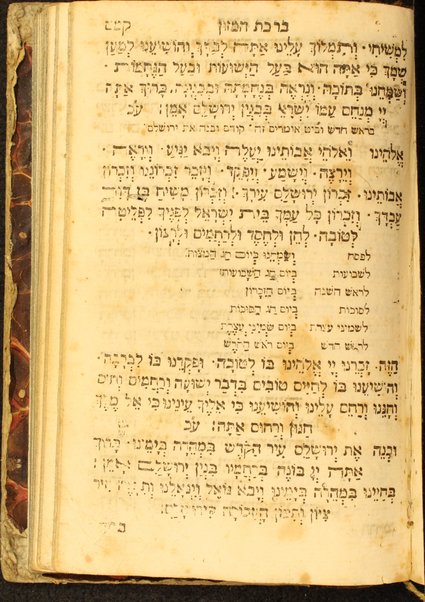 ברכת המזון
למשיחי׃ ותמלוך עלינו אתה לבדך והושיענו למען
שמך כי אתה הוא בעל הישועות ובעל הנחמות׃
ושמחנו בתוכה׃ ונראה בנחמתה ובבנינה׃ ברוך אתה
יי מנחם עמו ישרא׳ בבנין ירושלם אמן׃
בראש חדש ובי״ט אומרים זה׳ קודם ובנה את ירושלם׳
אלהינו ואלהי אבותינו יעלה ויבא יגיע׃ ויראה׃
וירצה׃ וישמע׃ ויפקד׃ ויזכר זכרוננו וזכרון
אבותינו׃ זכרון ירושלם עירך׃ וזכרון משיח בן דוד
עבדך׃ וזכרון כל עמך בית ישראל לפניך לפליטה
לטובה׃ לחן ולחסד ולרחמים ולרצון׃
לפסח ביום חג המצות׃
לשבועות ביום חג השבועות׃
לראש השנה ביום הזכרון
לסוכות ביום חג הסוכות
לשמיני עצרת ביום שמיני עצרת
לראש חדש ביום ראש החדש
הזה׃ זכרנו יי אלהינו בו לטובה׃ ופקדנו בו לברכה׃
והושיענו בו לחיים טובים בדבר ישועה ורחמים וחוס
וחננו ורחם עלינו והושיענו כי אליך עינינו כי אל מלך
חנון ורחום אתה׃
ובנה את ירושלם עיר הקדש במהרה בימינו׃ ברוך
אתה יי בונה ברחמיו בנין ירושלם אמן׃
בחיינו במהרה בימינו ויבא גואל ויגאלנו
ציון ותכון העבודה בירושלם׃